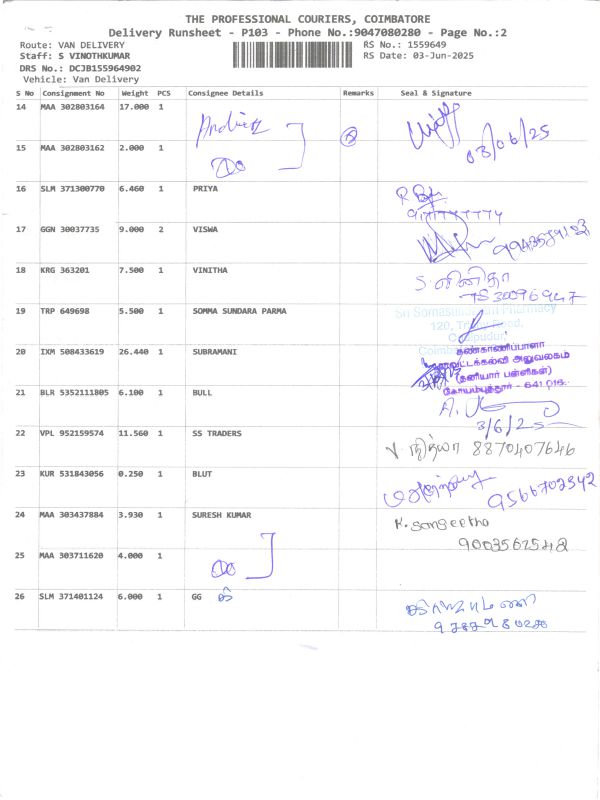 THE PROFESSIONAL COURIERS, COIMBATORE
Delivery Runsheet - P103 - Phone No.:9047080280 - Page No.:2
Route: VAN DELIVERY RS No.: 1559649
Staff: S VINOTHKUMAR RS Date: 03-Jun-2025
DRS No.: DCJB155964902
Vehicle: Van Delivery
S No Consignment No Weight PCS Consignee Details Remarks Seal & Signature
14 MAA 302803164 17.000 1
03/06/25
15 MAA 302803162 2.000 1 Do
16 SLM 371300770 6.460 1 PRIYA
17 GGN 30037735 9.000 2 VISWA
18 KRG 363201 7.500 1 VINITHA
S வினிதா
19 TRP 649698 5.500 1 SOMMA SUNDARA PARMA
Pharmacy
120,
Road,
20 IXM 508433619 26.440 1 SUBRAMANI
அலுவலகம்
(தனியார் பள்ளிகள்)
கோயம்புத்தூர் - 641 018.
21 BLR 5352111805 6.100 1 BULL
3/6/25
22 VPL 952159574 11.560 1 SS TRADERS
8870407646
23 KUR 531843056 0.250 1 BLUT
9566702542
24 MAA 303437884 3.930 1 SURESH KUMAR
K. Sangeetha
9003562548
25 MAA 303711620 4.000 1 Do
26 SLM 371401124 6.000 1 GG